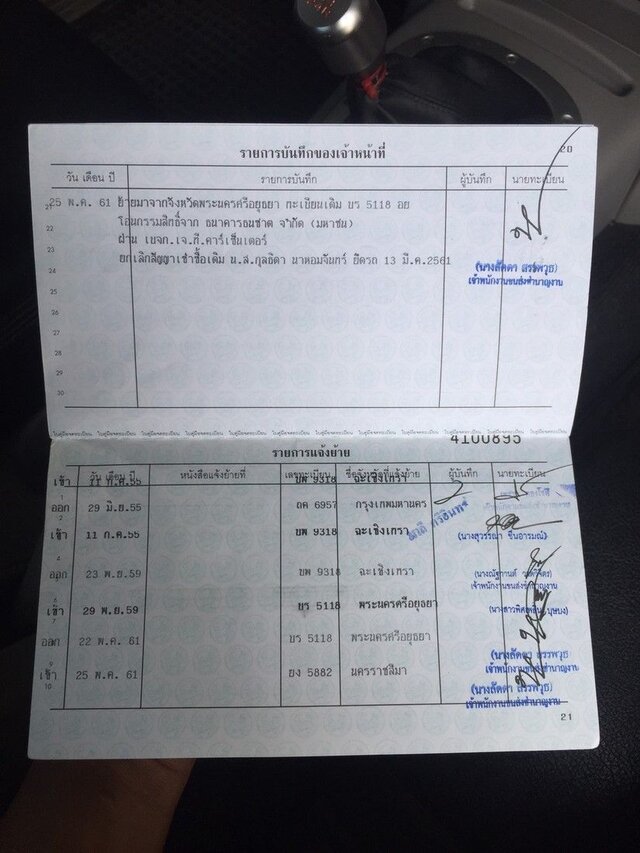 รายการบันทึกของเจ้าหน้าที่
20
วัน เดือน ปี รายการบันทึก ผู้บันทึก นายทะเบียน
21 25 พ.ค. 61 ย้ายมาจากจังหวัดพระนครศรีอยุธยา ทะเบียนเดิม บร 5118 อย
22 โอนกรรมสิทธิ์จาก ธนาคารธนชาต จำกัด (มหาชน)
23 ผ่าน เบจก.เจ.กี.คาร์เซ็นเตอร์
24 ยกเลิกสัญญาเช่าซื้อเดิม น.ส.กุลธิดา นาหอมจันทร์ ยึดรถ 13 มี.ค.2561
(นางลัดดา สรรพวุธ)
เจ้าพนักงานขนส่งชำนาญงาน
25
26
27
28
29
30
4100895
รายการแจ้งย้าย
วัน เดือน ปี หนังสือแจ้งย้ายที่ เลขทะเบียน ชื่อจังหวัดที่แจ้งย้าย ผู้บันทึก นายทะเบียน
เข้า 11 ก.ค.55 บพ 9318 ฉะเชิงเทรา
1
ออก 29 มิ.ย.55 ถค 6957 กรุงเทพมหานคร
2
เข้า 11 ก.ค.55 บพ 9318 ฉะเชิงเทรา
4
ออก 23 พ.ย.59 บพ 9318 ฉะเชิงเทรา
เจ้าพนักงานขนส่งชำนาญงาน
6
เข้า 29 พ.ย.59 บร 5118 พระนครศรีอยุธยา
7
ออก 22 พ.ค. 61 บร 5118 พระนครศรีอยุธยา
(นางลัดดา สรรพวุธ)
เจ้าพนักงานขนส่งชำนาญงาน
9
เข้า 25 พ.ค. 61 ยง 5882 นครราชสีมา
10
(นางลัดดา สรรพวุธ)
เจ้าพนักงานขนส่งชำนาญงาน
21